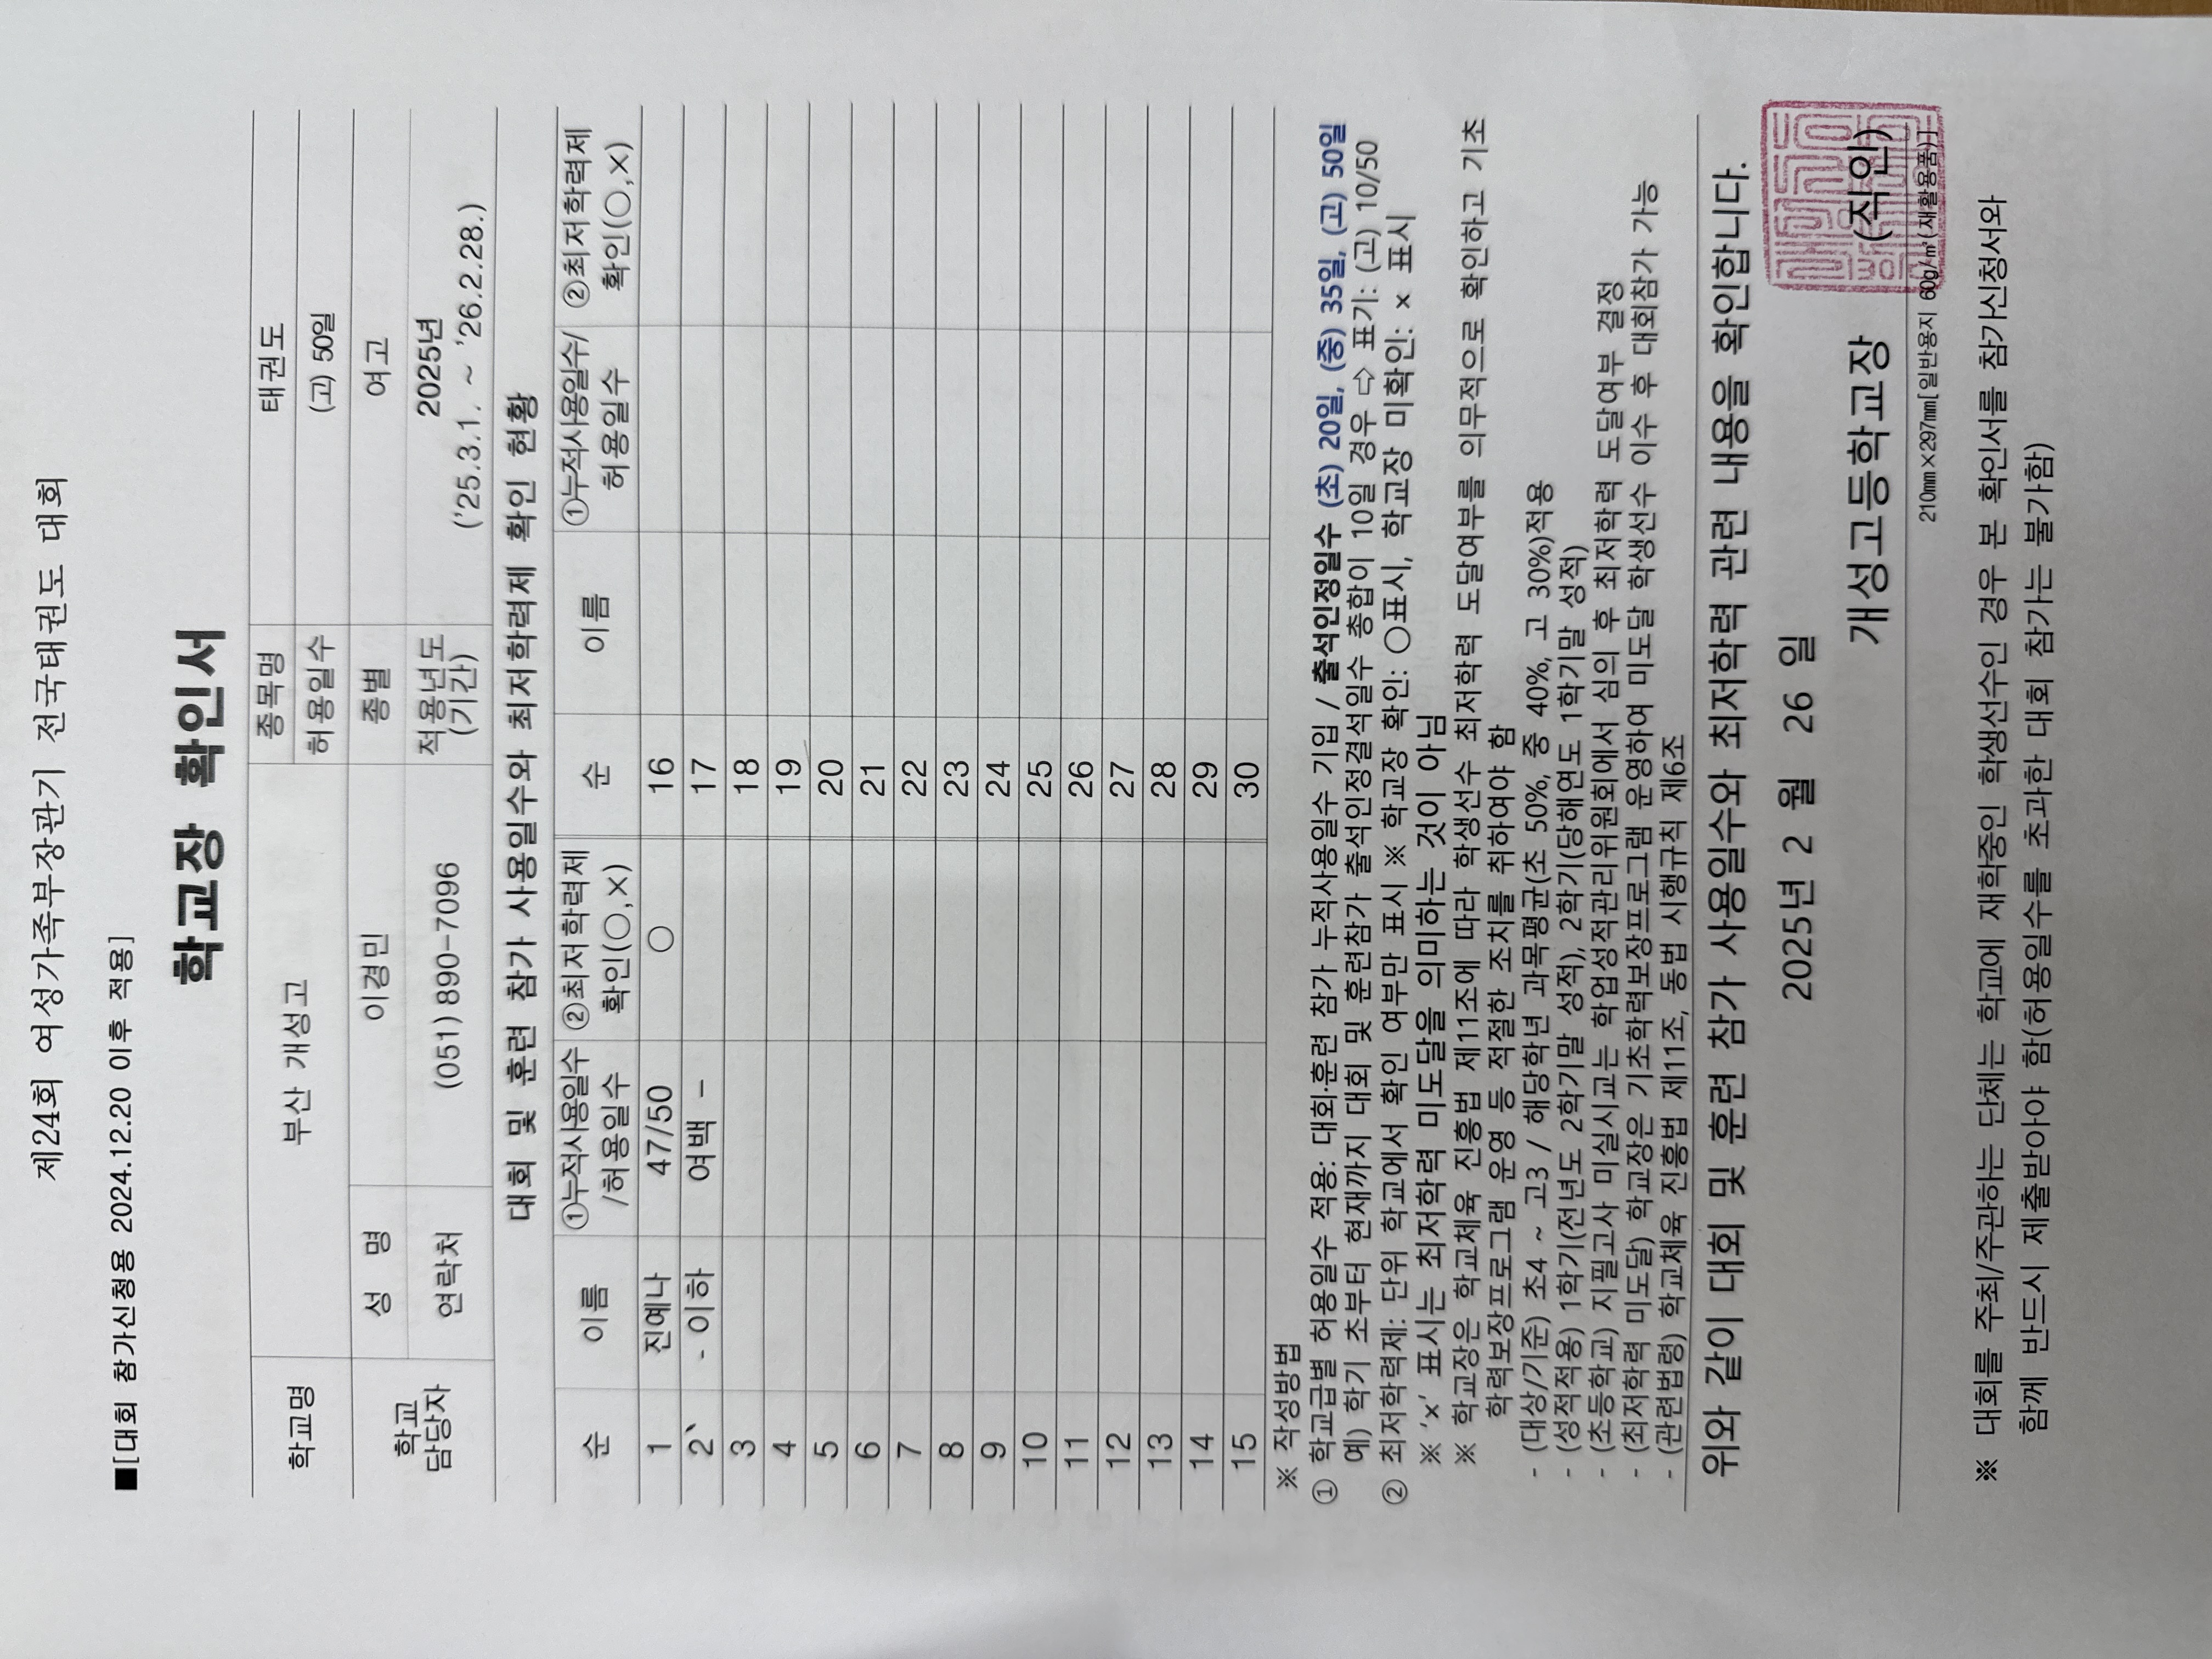 제24회 여성가족부장관기 전국태권도 대회
■[대회 참가신청용 2024.12.20 이후 적용]
학교장 확인서
학교명 부산 개성고 종목명 태권도
허용일수 (고) 50일
학교 담당자 성 명 이경민 종별 여고
연락처 (051) 890-7096 적용년도 (기간) 2025년
('25.3.1. ~ '26.2.28.)
대회 및 훈련 참가 사용일수와 최저학력제 확인 현황
순 이름 ①누적사용일수/허용일수 ②최저학력제 확인(○,×) 순 이름 ①누적사용일수/허용일수 ②최저학력제 확인(○,×)
1 진예나 47/50 ○ 16
2 - 이하 여백 - 17
3 18
4 19
5 20
6 21
7 22
8 23
9 24
10 25
11 26
12 27
13 28
14 29
15 30
※ 작성방법
① 학교급별 허용일수 적용: 대회·훈련 참가 누적사용일수 기입 / 출석인정일수 (초) 20일, (중) 35일, (고) 50일
예) 학기 초부터 현재까지 대회 및 훈련참가 출석인정결석일수 총합이 10일 경우 ⇨ 표기: (고) 10/50
② 최저학력제: 단위 학교에서 확인 여부만 표시 ※ 학교장 확인: ○표시, 학교장 미확인: × 표시
※ '×' 표시는 최저학력 미도달을 의미하는 것이 아님
※ 학교장은 학교체육 진흥법 제11조에 따라 학생선수 최저학력 도달여부를 의무적으로 확인하고 기초
학력보장프로그램 운영 등 적절한 조치를 취하여야 함
- (대상/기준) 초4 ~ 고3 / 해당학년 과목평균(초 50%, 중 40%, 고 30%)적용
- (성적적용) 1학기(전년도 2학기말 성적), 2학기(당해연도 1학기말 성적)
- (초등학교) 지필고사 미실시교는 학업성적관리위원회에서 심의 후 최저학력 도달여부 결정
- (최저학력 미도달) 학교장은 기초학력보장프로그램 운영하여 미도달 학생선수 이수 후 대회참가 가능
- (관련법령) 학교체육 진흥법 제11조, 동법 시행규칙 제6조
위와 같이 대회 및 훈련 참가 사용일수와 최저학력 관련 내용을 확인합니다.
2025년 2 월 26 일
개성고등학교장 (직인)
210mm×297mm[일반용지 60g/㎡(재활용품)]
※ 대회를 주최/주관하는 단체는 학교에 재학중인 학생선수인 경우 본 확인서를 참가신청서와
함께 반드시 제출받아야 함(허용일수를 초과한 대회 참가는 불가함)